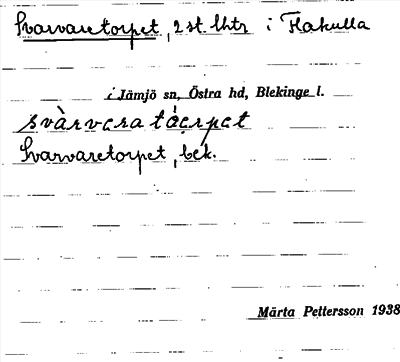 Svarvaretorpet, 2 st. lhtr i Flakulla
i Jämjö sn, Östra hd, Blekinge l.
svàrvaratåerpet
Svarvaretorpet, bek.
Märta Pettersson 1938